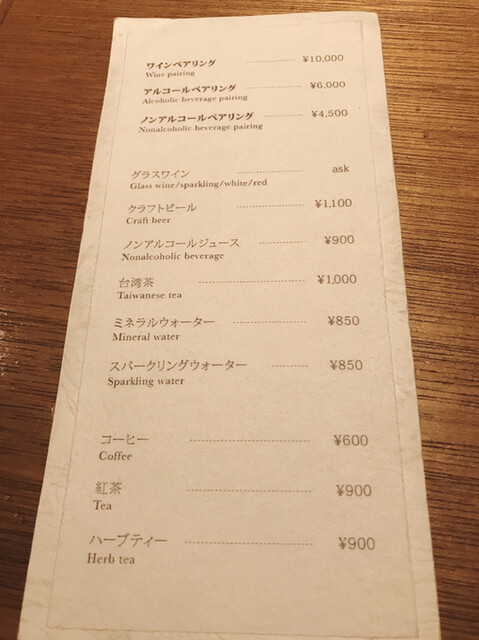 ワインペアリング ¥10,000
Wine pairing
アルコールペアリング ¥6,000
Alcoholic beverage pairing
ノンアルコールペアリング ¥4,500
Nonalcoholic beverage pairing
グラスワイン ask
Glass wine/sparkling/white/red
クラフトビール ¥1,100
Craft beer
ノンアルコールジュース ¥900
Nonalcoholic beverage
台湾茶 ¥1,000
Taiwanese tea
ミネラルウォーター ¥850
Mineral water
スパークリングウォーター ¥850
Sparkling water
コーヒー ¥600
Coffee
紅茶 ¥900
Tea
ハーブティー ¥900
Herb tea